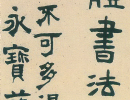 書法
不可多得
永寶